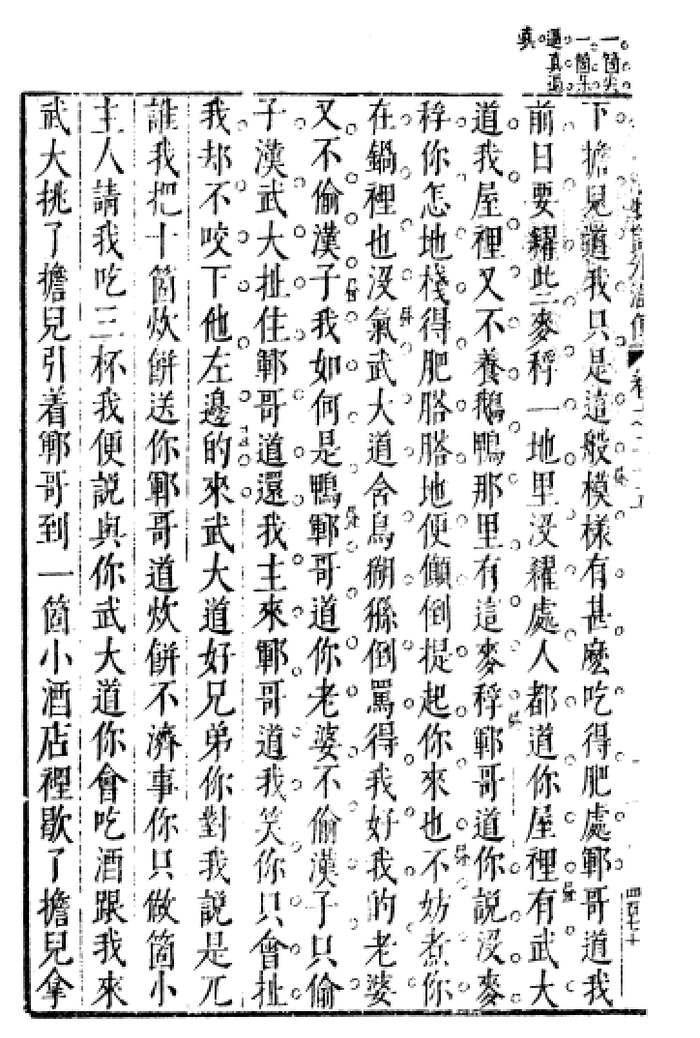 一箇尖
一箇呆
逼真逼
真
下擔兒道我只是這般模樣有甚麽吃得肥處鄆哥道我
前日要糴些麥稃一地里没糴處人都道你屋裡有武大
道我屋裡又不養鵝鴨那里有這麥稃鄆哥道你說没麥
稃你怎地棧得肥䐛䐛地便顚倒提起你來也不妨煮你
在鍋裡也没氣武大道含鳥猢猻倒罵得我好我的老婆
又不偷漢子我如何是鴨鄆哥道你老婆不偷漢子只偷
子漢武大扯住鄆哥道還我主來鄆哥道我笑你只會扯
我却不咬下他左邊的來武大道好兄弟你對我說是兀
誰我把十箇炊餅送你鄆哥道炊餅不濟事你只做箇小
主人請我吃三杯我便說與你武大道你會吃酒跟我來
武大挑了擔兒引着鄆哥到一箇小酒店裡歇了擔兒拿
四百七十